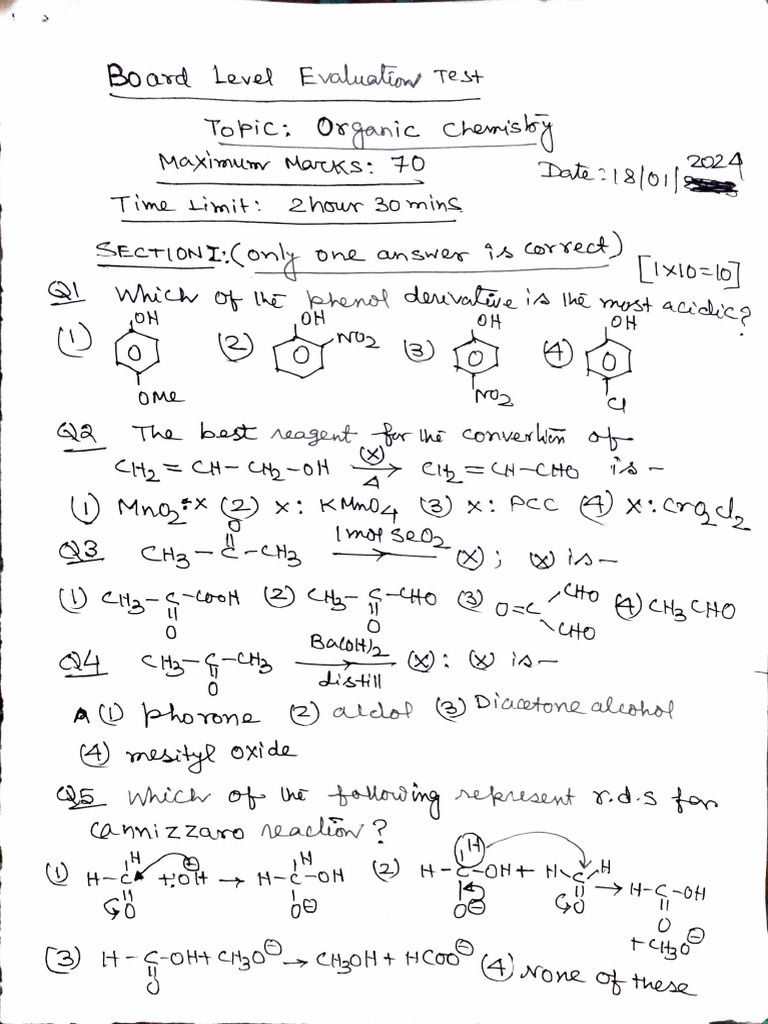 Board Level Evaluation Test
Topic: Organic Chemistry
Maximum Marks: 70
Date: 18/01/2024
Time Limit: 2 hour 30 mins
SECTION I: (only one answer is correct)
[1×10=10]
Q1 Which of the phenol derivative is the most acidic?
(1) OH OMe (2) OH NO2 (3) OH NO2 (4) OH Cl
Q2 The best reagent for the convertion of
CH2=CH-CH2-OH (X) Δ → CH2=CH-CHO is -
(1) MnO2:X (2) X: KMnO4 (3) X: PCC (4) X: CrO2Cl2
Q3 CH3-C(=O)-CH3 1 mol SeO2 → (X); (X) is -
(1) CH3-C(=O)-COOH (2) CH3-C(=O)-CHO (3) O=C(CHO)CHO (4) CH3CHO
Q4 CH3-C(=O)-CH3 Ba(OH)2 distill → (X): (X) is -
(1) phorone (2) aldol (3) Diacetone alcohol
(4) mesityl oxide
Q5 Which of the following represent r.d.s for
cannizzaro reaction?
(1) H-C(=O)H + :OH⊖ → H-C(H)(O⊖)-OH (2) H-C(H)(O⊖)-OH + H-C(=O)-H → H-C(=O)-OH
+ CH3O⊖
(3) H-C(=O)-OH + CH3O⊖ → CH3OH + HCOO⊖ (4) None of these